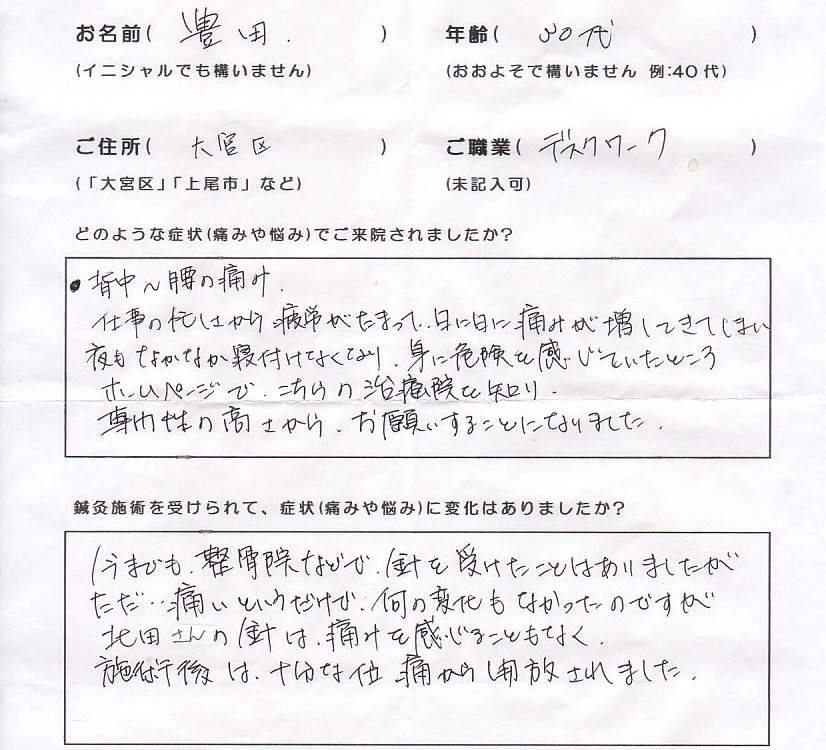 お名前( 豊田. ) 年齢( 30代 )
(イニシャルでも構いません) (おおよそで構いません 例:40代)
ご住所( 大宮区 ) ご職業( デスクワーク )
(「大宮区」「上尾市」など) (未記入可)
どのような症状(痛みや悩み)でご来院されましたか?
・背中〜腰の痛み.
仕事の忙しさから疲労がたまって、日に日に痛みが増してきてしまい
夜もなかなか寝付けなくなり、身に危険を感じていたところ
ホームページで、こちらの治療院を知り、
専門性の高さから、お願いすることになりました.
鍼灸施術を受けられて、症状(痛みや悩み)に変化はありましたか?
今までも、整骨院などで、針を受けたことはありましたが
ただ…痛いというだけで、何の変化もなかったのですが
北田さんの針は、痛みを感じることもなく、
施術後は、十分な位 痛から開放されました.